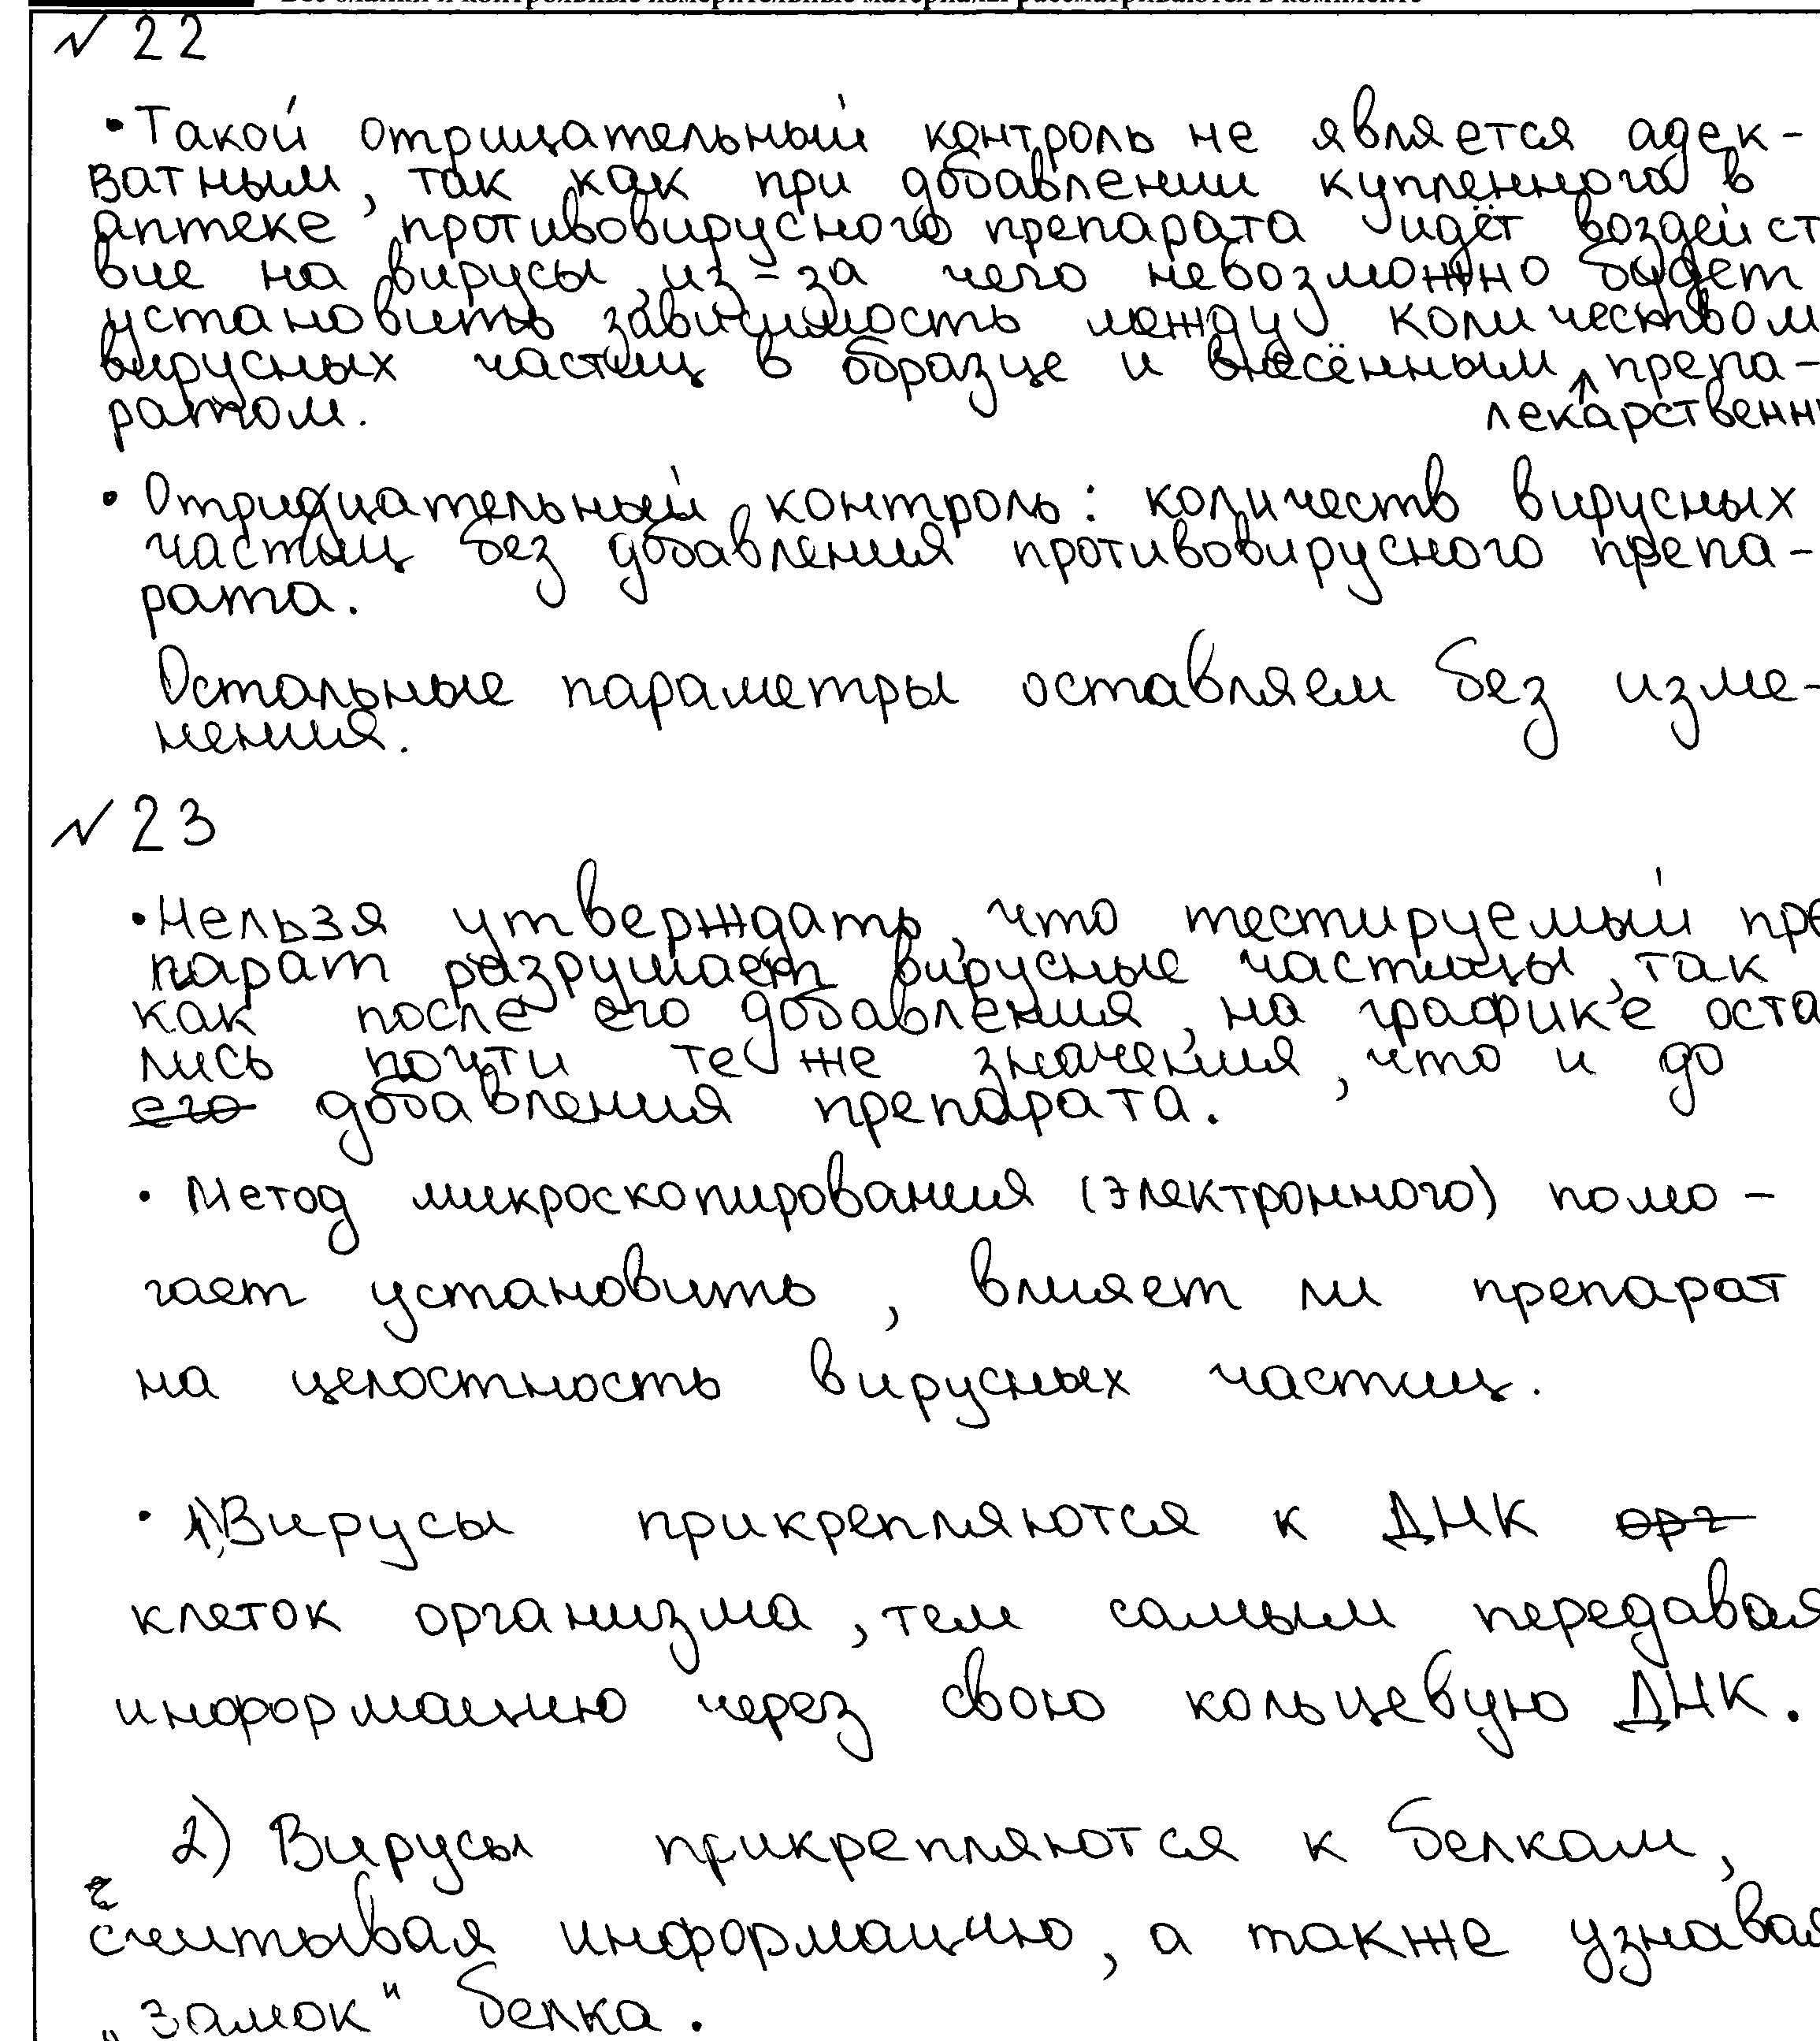 Все бланки и контрольные измерительные материалы рассматриваются в комплекте
№ 22
• Такой отрицательный контроль не является адек-
ватным, так как при добавлении купленного в
аптеке противовирусного препарата идёт воздейст
вие на вирусы, из-за чего невозможно будет
установить зависимость между количеством
вирусных частиц в образце и внесённым препа-
ратом. лекарственн
• Отрицательный контроль: количеств вирусных
частиц без добавления противовирусного препа-
рата.
Остальные параметры оставляем без изме-
нения.
№ 23
• Нельзя утверждать, что тестируемый пре
парат разрушает вирусные частицы, так
как после его добавления, на графике оста
лись почти те же значения, что и до
его добавления препарата.
• Метод микроскопирования (электронного) помо-
гает установить, влияет ли препарат
на целостность вирусных частиц.
• 1) Вирусы прикрепляются к ДНК орг
клеток организма, тем самым передавая
информацию через свою кольцевую ДНК.
2) Вирусы прикрепляются к белкам,
считывая информацию, а также узнавая
"замок" белка.